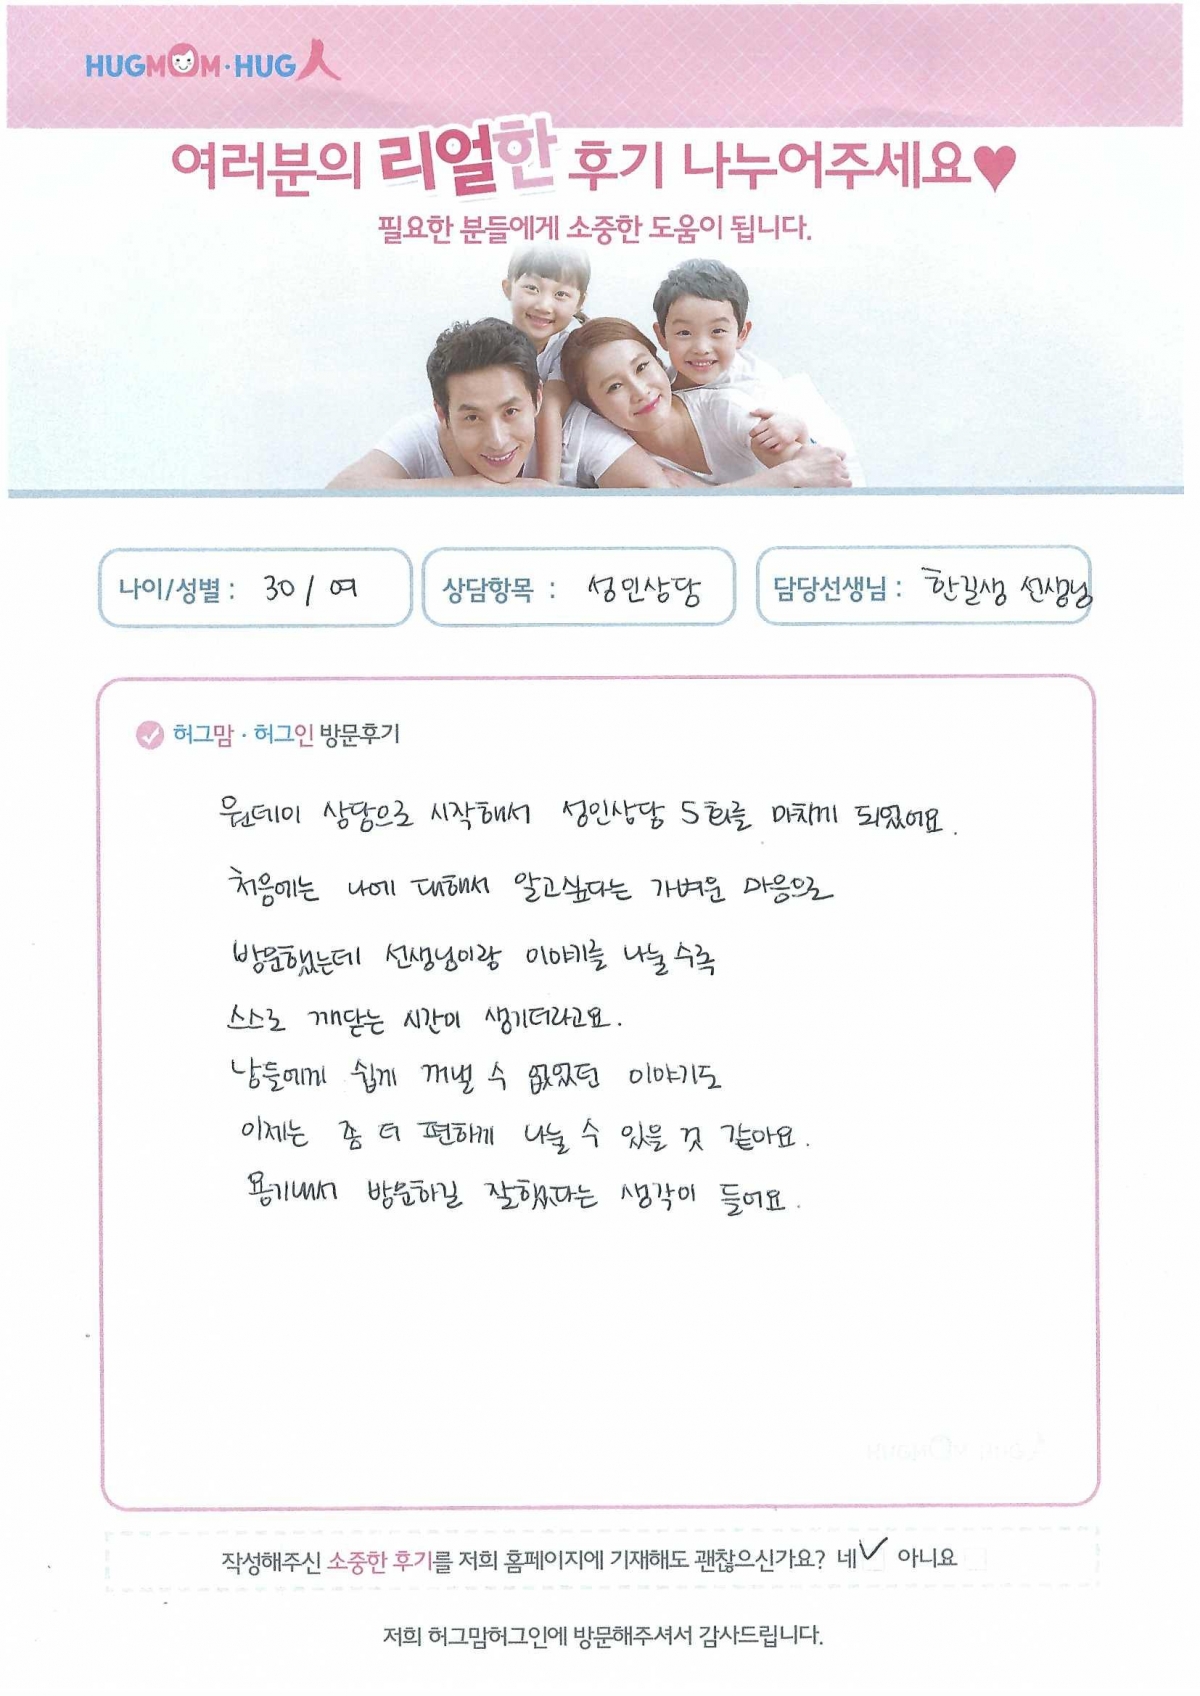 HUGMOM·HUG人
여러분의 리얼한 후기 나누어주세요♥
필요한 분들에게 소중한 도움이 됩니다.
나이/성별 : 30 / 여
상담항목 : 성인상담
담당선생님 : 한길생 선생님
허그맘·허그인 방문후기
원데이 상담으로 시작해서 성인상담 5회를 마치게 되었어요.
처음에는 나에 대해서 알고싶다는 가벼운 마음으로
방문했는데 선생님이랑 이야기를 나눌수록
스스로 깨닫는 시간이 생기더라고요.
남들에게 쉽게 꺼낼 수 없었던 이야기도
이제는 좀 더 편하게 나눌 수 있을 것 같아요.
용기내서 방문하길 잘했다는 생각이 들어요.
작성해주신 소중한 후기를 저희 홈페이지에 기재해도 괜찮으신가요? 네✓ 아니요
저희 허그맘허그인에 방문해주셔서 감사드립니다.